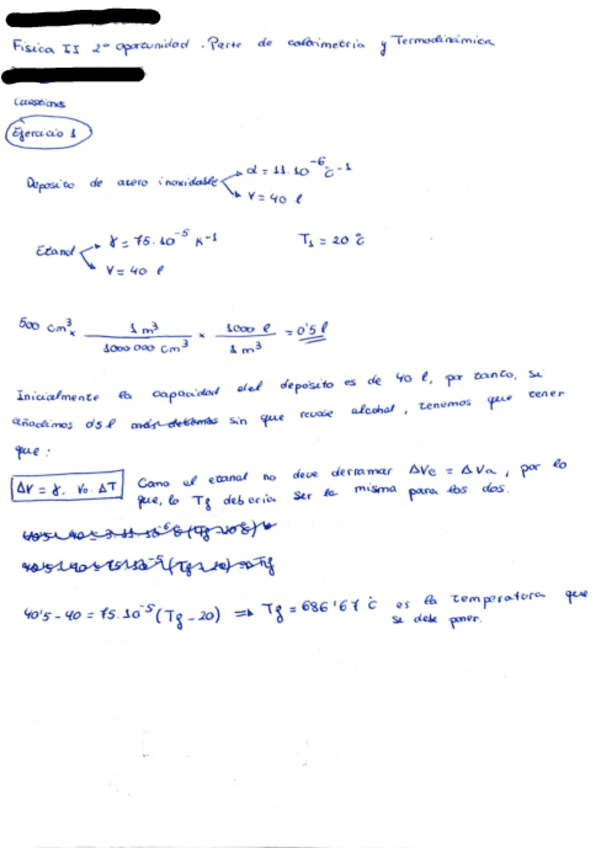 Física II 2ª oportunidad. Parte de calorimetría y Termodinámica
Cuestiones
Ejercicio 1
Deposito de acero inoxidable α = 11·10^-6 °C^-1
V = 40 l
Etanol γ = 75·10^-5 K^-1 T1 = 20 °C
V = 40 l
500 cm³ x 1 m³ / 1000 000 cm³ x 1000 l / 1 m³ = 0'5 l
Inicialmente la capacidad del deposito es de 40 l, por tanto, si
añadimos 0'5 l sin que rebose alcohol, tenemos que tener
que:
ΔV = γ. V0. ΔT Como el etanol no debe derramar ΔVe = ΔVa, por lo
que, la Tf deberia ser la misma para los dos.
40'5 - 40 = 75.10^-5 (Tf - 20) ⇒ Tf = 686'67 °C es la temperatura que
se debe poner.